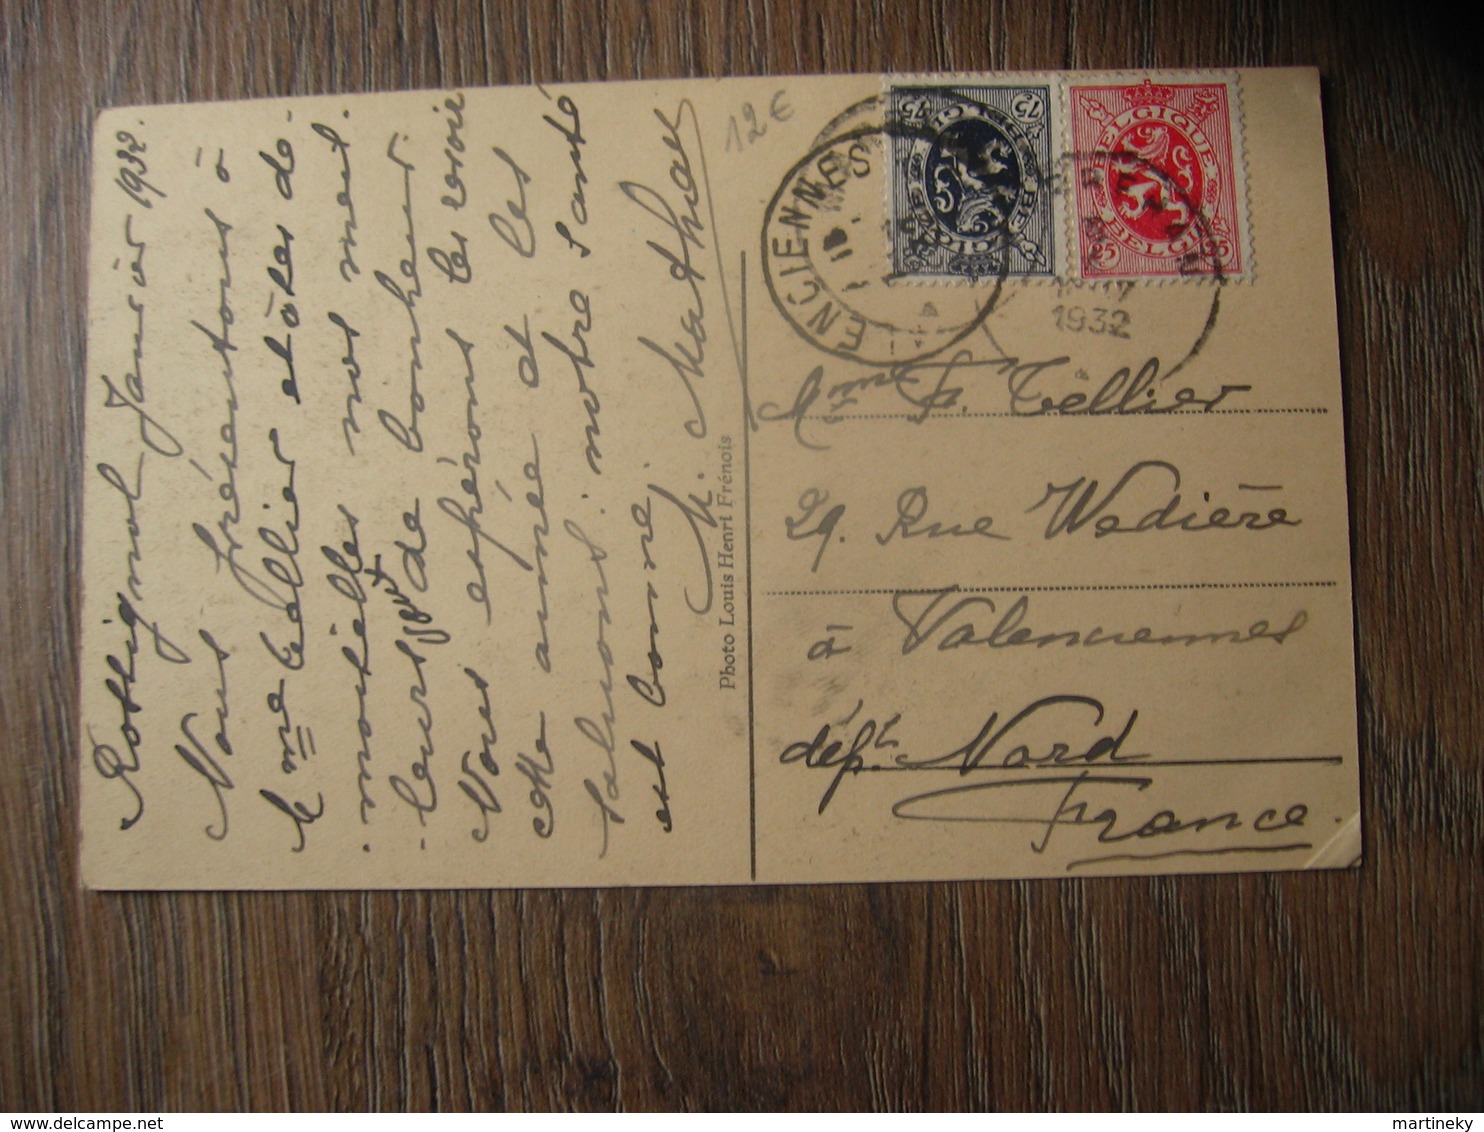 Rossignol Janvier 1932.
Nous présentons à
Mme Tellier et à ses de-
-moiselles nos meil-
-leurs vœux de bonheur.
Nous espérons le revoir
cette année et les
saluons. notre santé
est bonne.
M. Mathay
12€
Photo Louis Henri Frénois
VALENCIENNES
BELGIQUE
75
BELGIE
BELGIQUE
25
BELGIË
25
1932
Mme Tellier
29. Rue Wadière
à Valenciennes
dépt. Nord
France.
delcampe.net
martineky